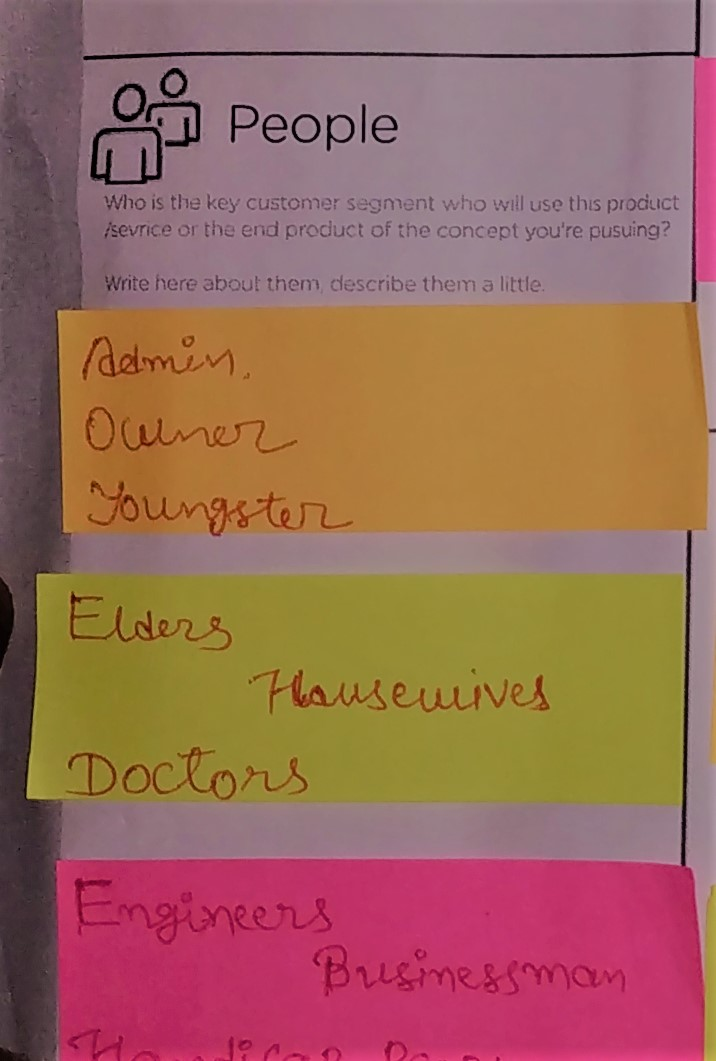 People
Who is the key customer segment who will use this product
/sevrice or the end product of the concept you're pusuing?
Write here about them, describe them a little.
Admin.
Owner
Youngster
Elders
Housewives
Doctors
Engineers
Businessman
Handicap